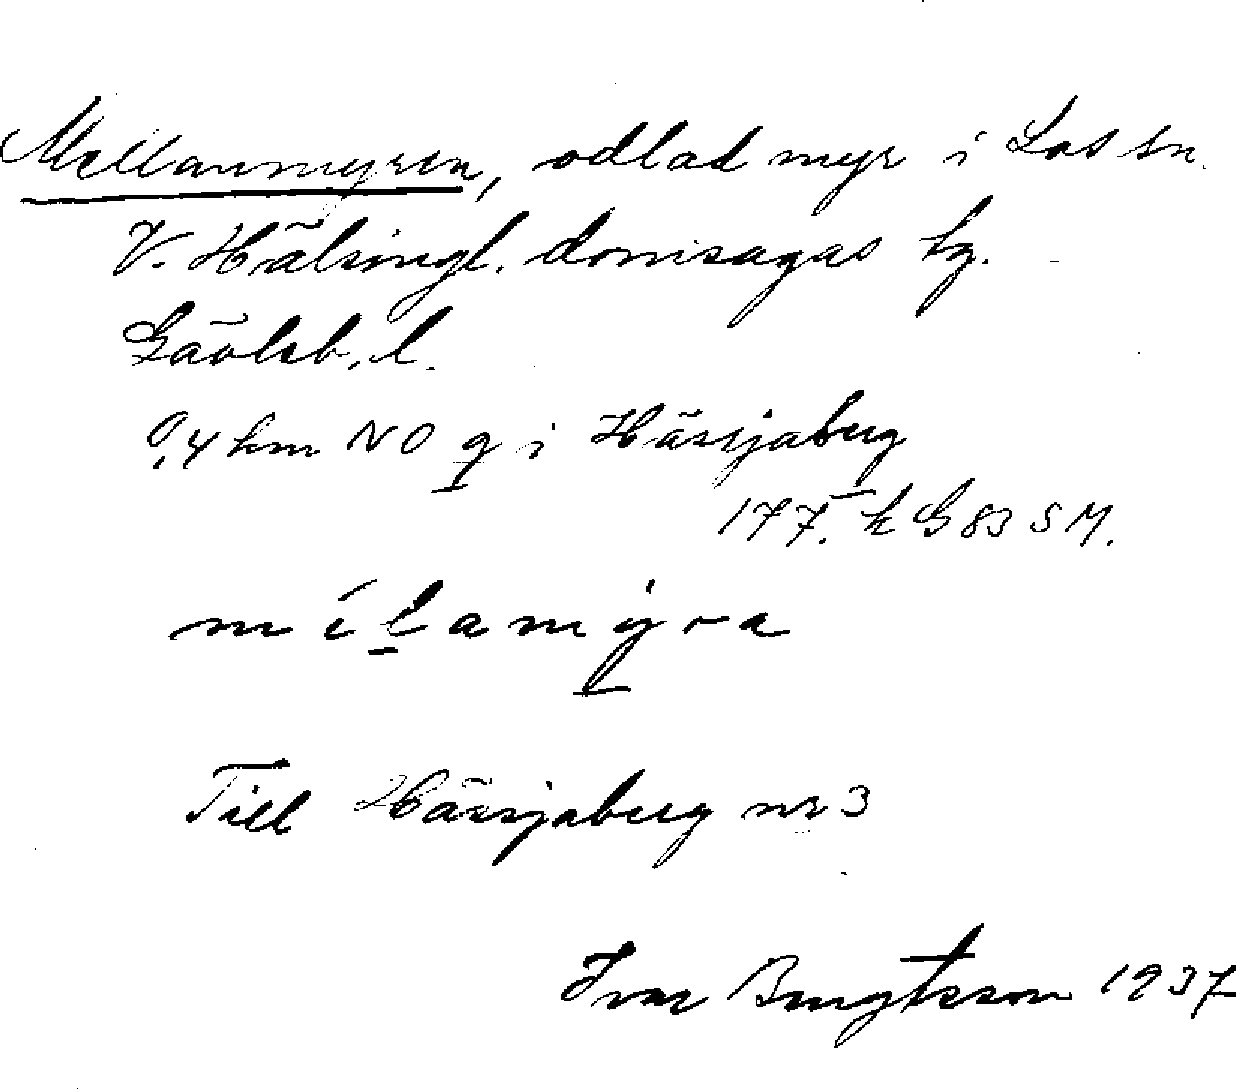 Mellanmyren, odlad myr i Los sn.
V. Hälsingl. domsagas tg.
Gävleb. l.
0,4 km NO g i Hässjaberg
177. k G 83 SM.
mélamỳra
Till Hässjaberg nr 3
Ivar Bengtsson 1937